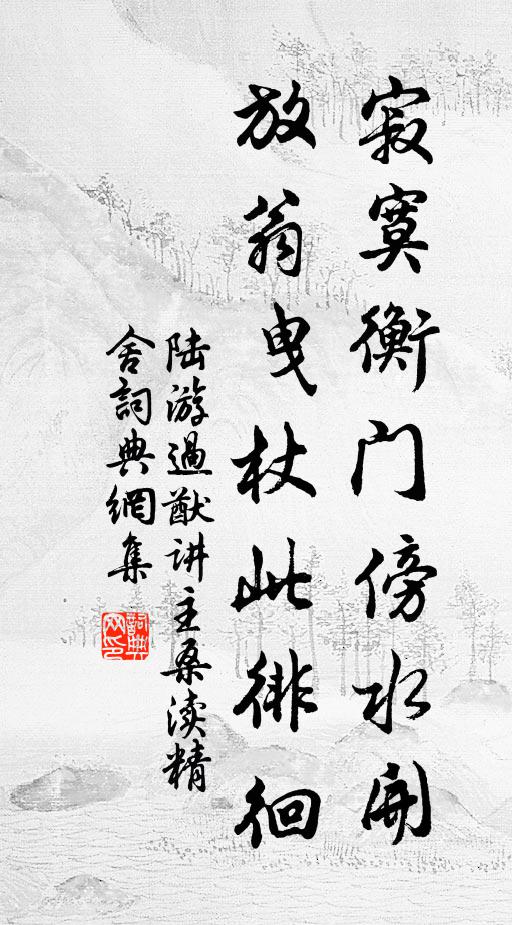 寂寞衡门傍水开
放翁曳杖此徘徊
陆游過猷讲主桑渎精
舍詞典網集
詞典网印